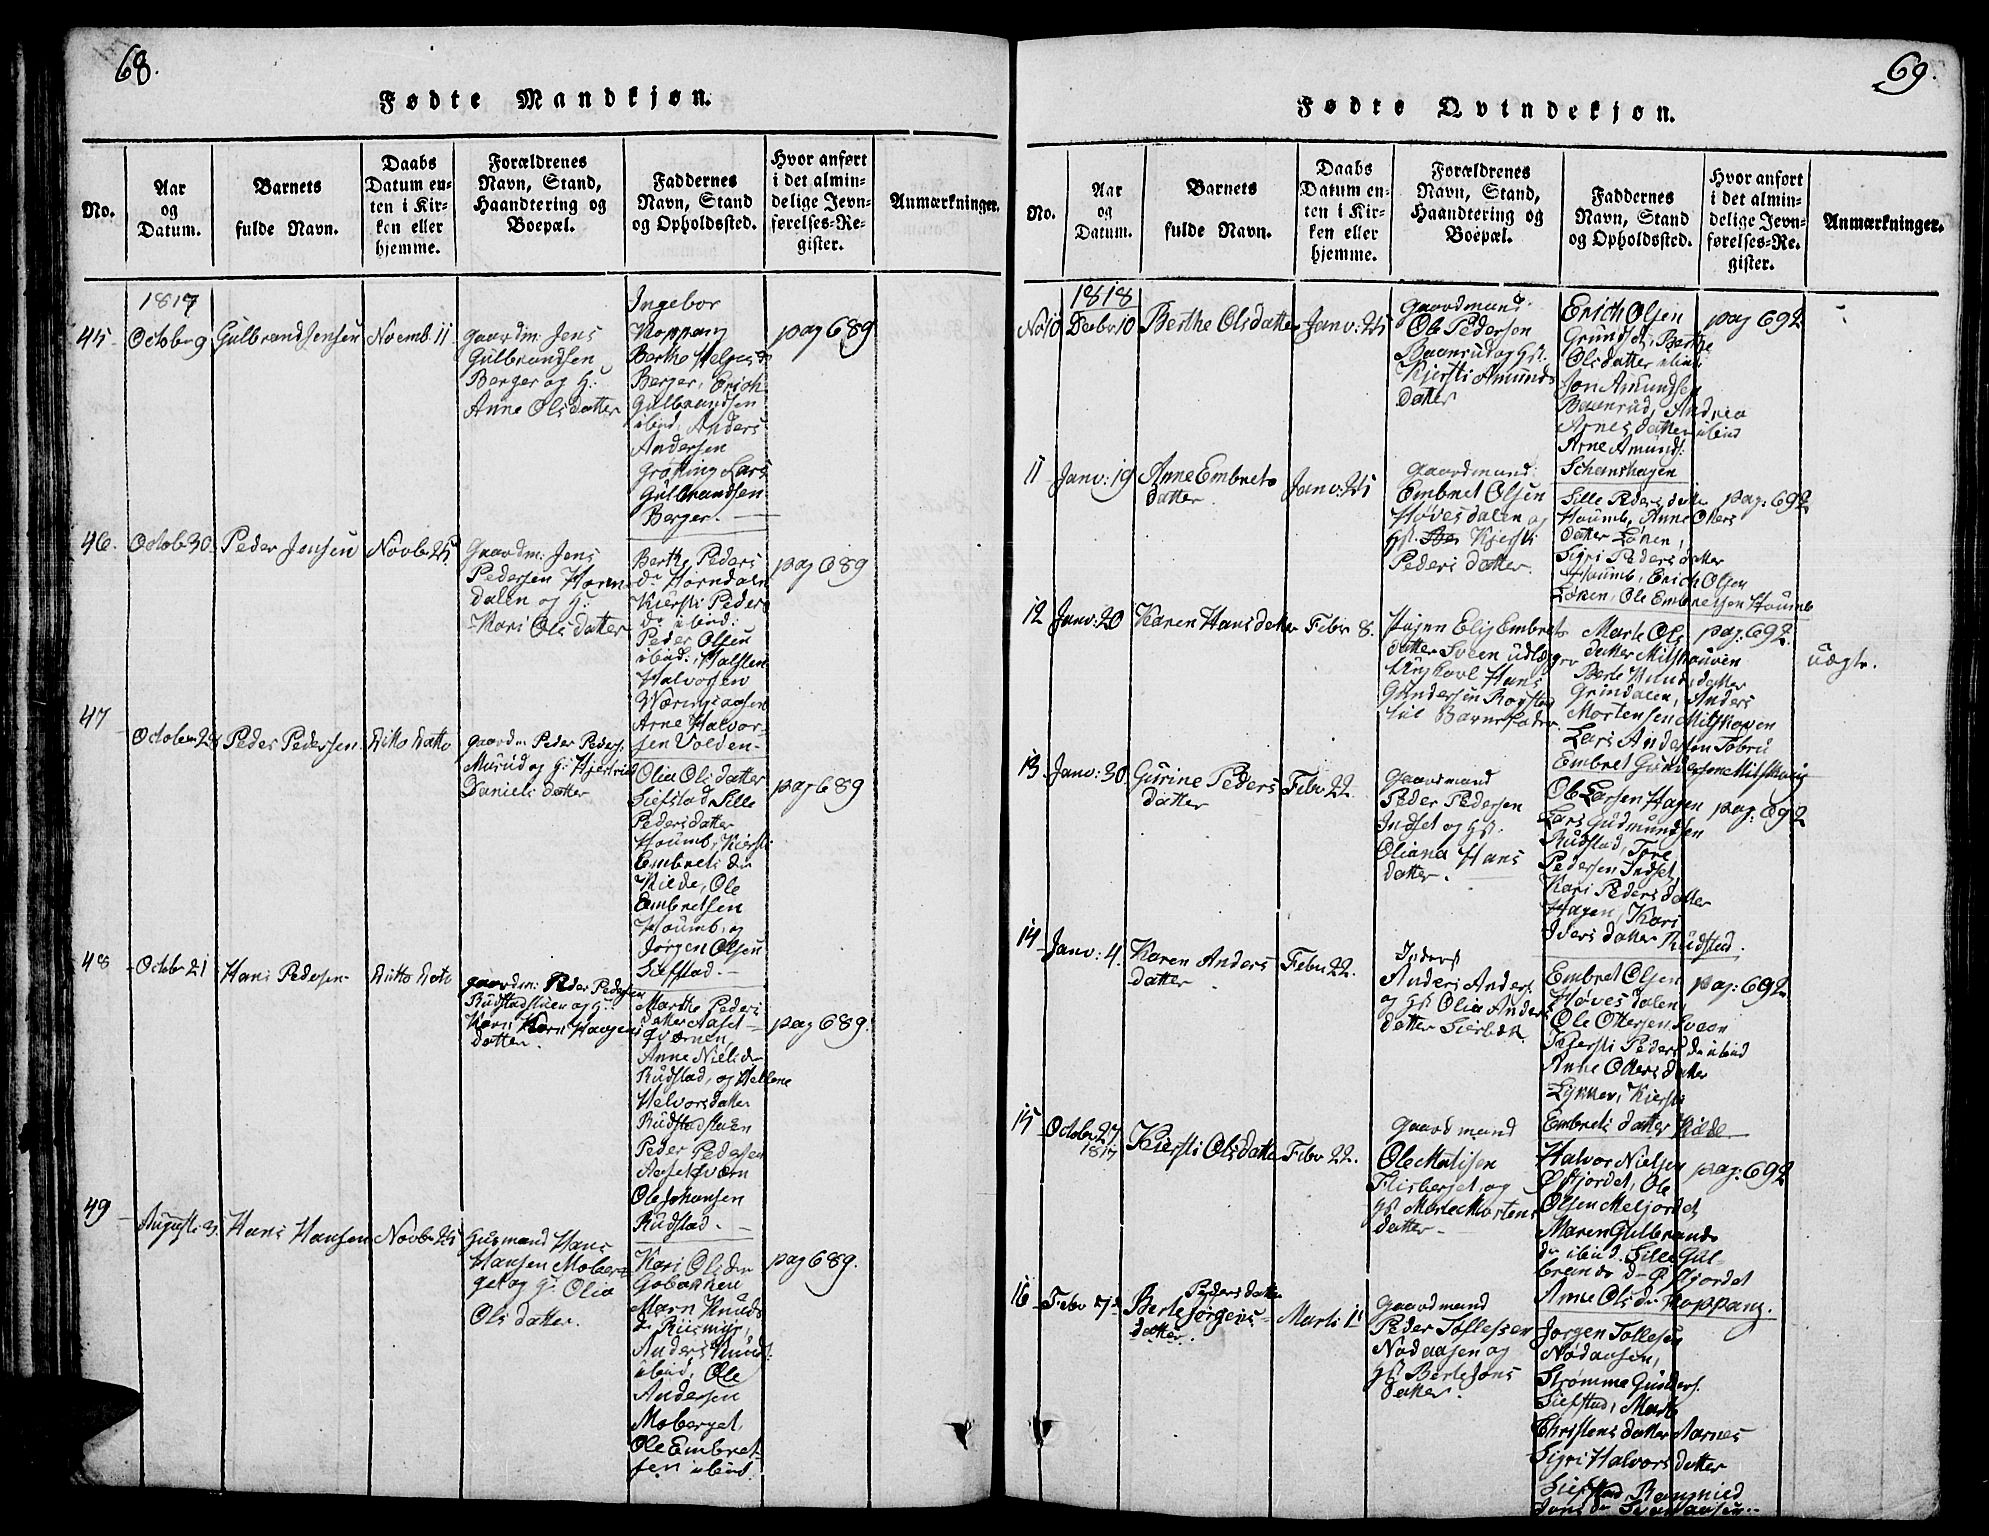 68.
Fødte Mandkjøn.
No.
Aar
og
Datum.
Barnets
fulde Navn.
Daabs
Datum en-
ten i Kir-
ken eller
hjemme.
Forældrenes
Navn, Stand,
Haandtering og
Boepæl.
Faddernes
Navn, Stand
og Opholdssted.
Hvor anført
i det almin-
delige Jevn-
førelses-Re-
gister.
Anmærkninger.
1817
45
October 9
Gulbrand Jensen
Novemb. 11
Gaardm: Jens
Gulbrandsen
Berger og H:
Anne Olsdatter
Ingebor
Koppang
Berthe Helges d
Berger, Erich
Gulbrandsen
ibid, Anders
Andersen
Grøtting Lars
Gulbrandsen
Berger.
pag 689
46.
Octob 30
Peder Jensen
Novb 25
Gaardm: Jens
Pedersen Horn
dalen og H:
Kari Olsdatter
Berthe Peders
dr Horndalen
Kiersti Peders
dr ibid:
Peder Olsen
ibid: Halsten
Halvorsen
Wæringsaasen
Arne Halvor-
sen Volden
pag 689
47
October 28
Peder Pedersen
Ditto Datto
Gaardm Peder Peders:
Musud og H:
Daniels datter
Olia Olsdatter
Siefstad Sille
Peders datter
Houmb, Kiersti
Embrets dr
Kilde, Ole
Embretsen
Houmb, og
Jørgen Olsen
Siefstad.
pag 689
48
Octobr 21
Hans Pedersen
Ditto Dato
Gaardm: Peder Pedersen
Rudstadstuen og H:
Kari Haagens
datter.
Marthe Peders
datter Aaset
qværnen,
Anne Niels dr
Rudstad, og Hellene
Helvorsdatter
Rudstadstuen
Peder Pedersen
Aasetqværn
Ole Johansen
Rudstad.
pag 689.
49
August 3
Hans Hansen
Novb 25
Husmand Hans
Hansen Mober
get og H: Olia
Olsdatter.
Kari Olsdr
Gobakken
Marn Knuds
dr Rusmyr,
Anders Knuds:
ibid, Ole
Andersen
Moberget
Ole Embret-
sen ibid.
pag 689.
69.
Fødte Qvindekjøn.
No.
Aar
og
Datum.
Barnets
fulde Navn.
Daabs
Datum en-
ten i Kir-
ken eller
hjemme.
Forældrenes
Navn, Stand,
Haandtering og
Boepæl.
Faddernes
Navn, Stand
og Opholdssted.
Hvor anført
i det almin-
delige Jevn-
førelses-Re-
gister.
Anmærkninger.
1818
No 10
Decbr 10
Berthe Olsdatter
Janv: 25
Gaardmand
Ole Pedersen
Baanrud og Hst.
Kjersti Amunds
datter
Erich Olsen
Grundset, Berthe
Olsdatter ibid
Jon Amundsen
Baanrud, Andrea
Arnesdatter ibid
Arne Amunds:
Schanshagen
pag 692
11
Janv: 19
Anne Embrets
datter
Janv: 25
Gaardmand
Embret Olsen
Høvesdalen og
Hst. Kjersti
Peders datter.
Sille Pedersdatter
Houmb, Anne Oters
datter Løken,
Sigri Pedersdatter
Houmb, Erich Olsen
Løken, Ole Embretsen Houmb
pag: 692
12
Janv: 20
Karen Hansdatter
Febr 8.
Pigen Elis Embrets
datter Sveen udlægger
Ungkarl Hans
Gundersen Rogstad
til Barnefader.
Marte Ols
datter Mitskouven
Berte Knudsdatter
Grindalen, Anders
Mortensen Mitskoven
Lars Andersen Tobru
Embret Gundersen Mitskoug
pag: 692
uægte.
13
Janv: 30
Gurine Peders
datter
Febr 22.
Gaardmand
Peder Pedersen
Indset og Hst.
Oliana Hans
datter.
Ole Larsen Hagen
Lars Gudmundsen
Rudstad, Tore
Pedersen Indset,
Kari Pedersdatter
Hagen, Kari
Ivers datter Rudstad.
pag: 692
14
Janv: 4.
Karen Anders
datter
Febr 22.
Inders
Anders Anders:
og Hst Olia Anders
datter Sierbæk.
Embret Olsen
Høvesdalen,
Ole Ottersen Sveen
Kiersti Peders dr ibid
Anne Ottersdatter
Lykken, Kiersti
Embrets datter Kilde
pag: 692
15
October 27
1817
Kiersti Olsdatter
Febr 22.
Gaardmand
Ole Matisen
Flisberget og
Hst Marte Mortens
datter
Halvor Nielsen
Øfjordet, Ole
Olsen Meljordet,
Maren Gulbrands
dr ibid. Sille Gul-
brands dr Øfjordet
Anne Olsdr Koppang.
pag: 692
16
Febr 7de
Pedersdatter
Berte Jørgens
datter.
Marti 11
Gaardmand
Peder Tollefsen
Nodaasen og
Hst Berte Jons
datter.
Jørgen Tollefsen
Nodaasen,
Strømme Gunders:
Siefstad, Marte
Christensdatter Aarnes
Sigri Halvorsdatter
Siefstad